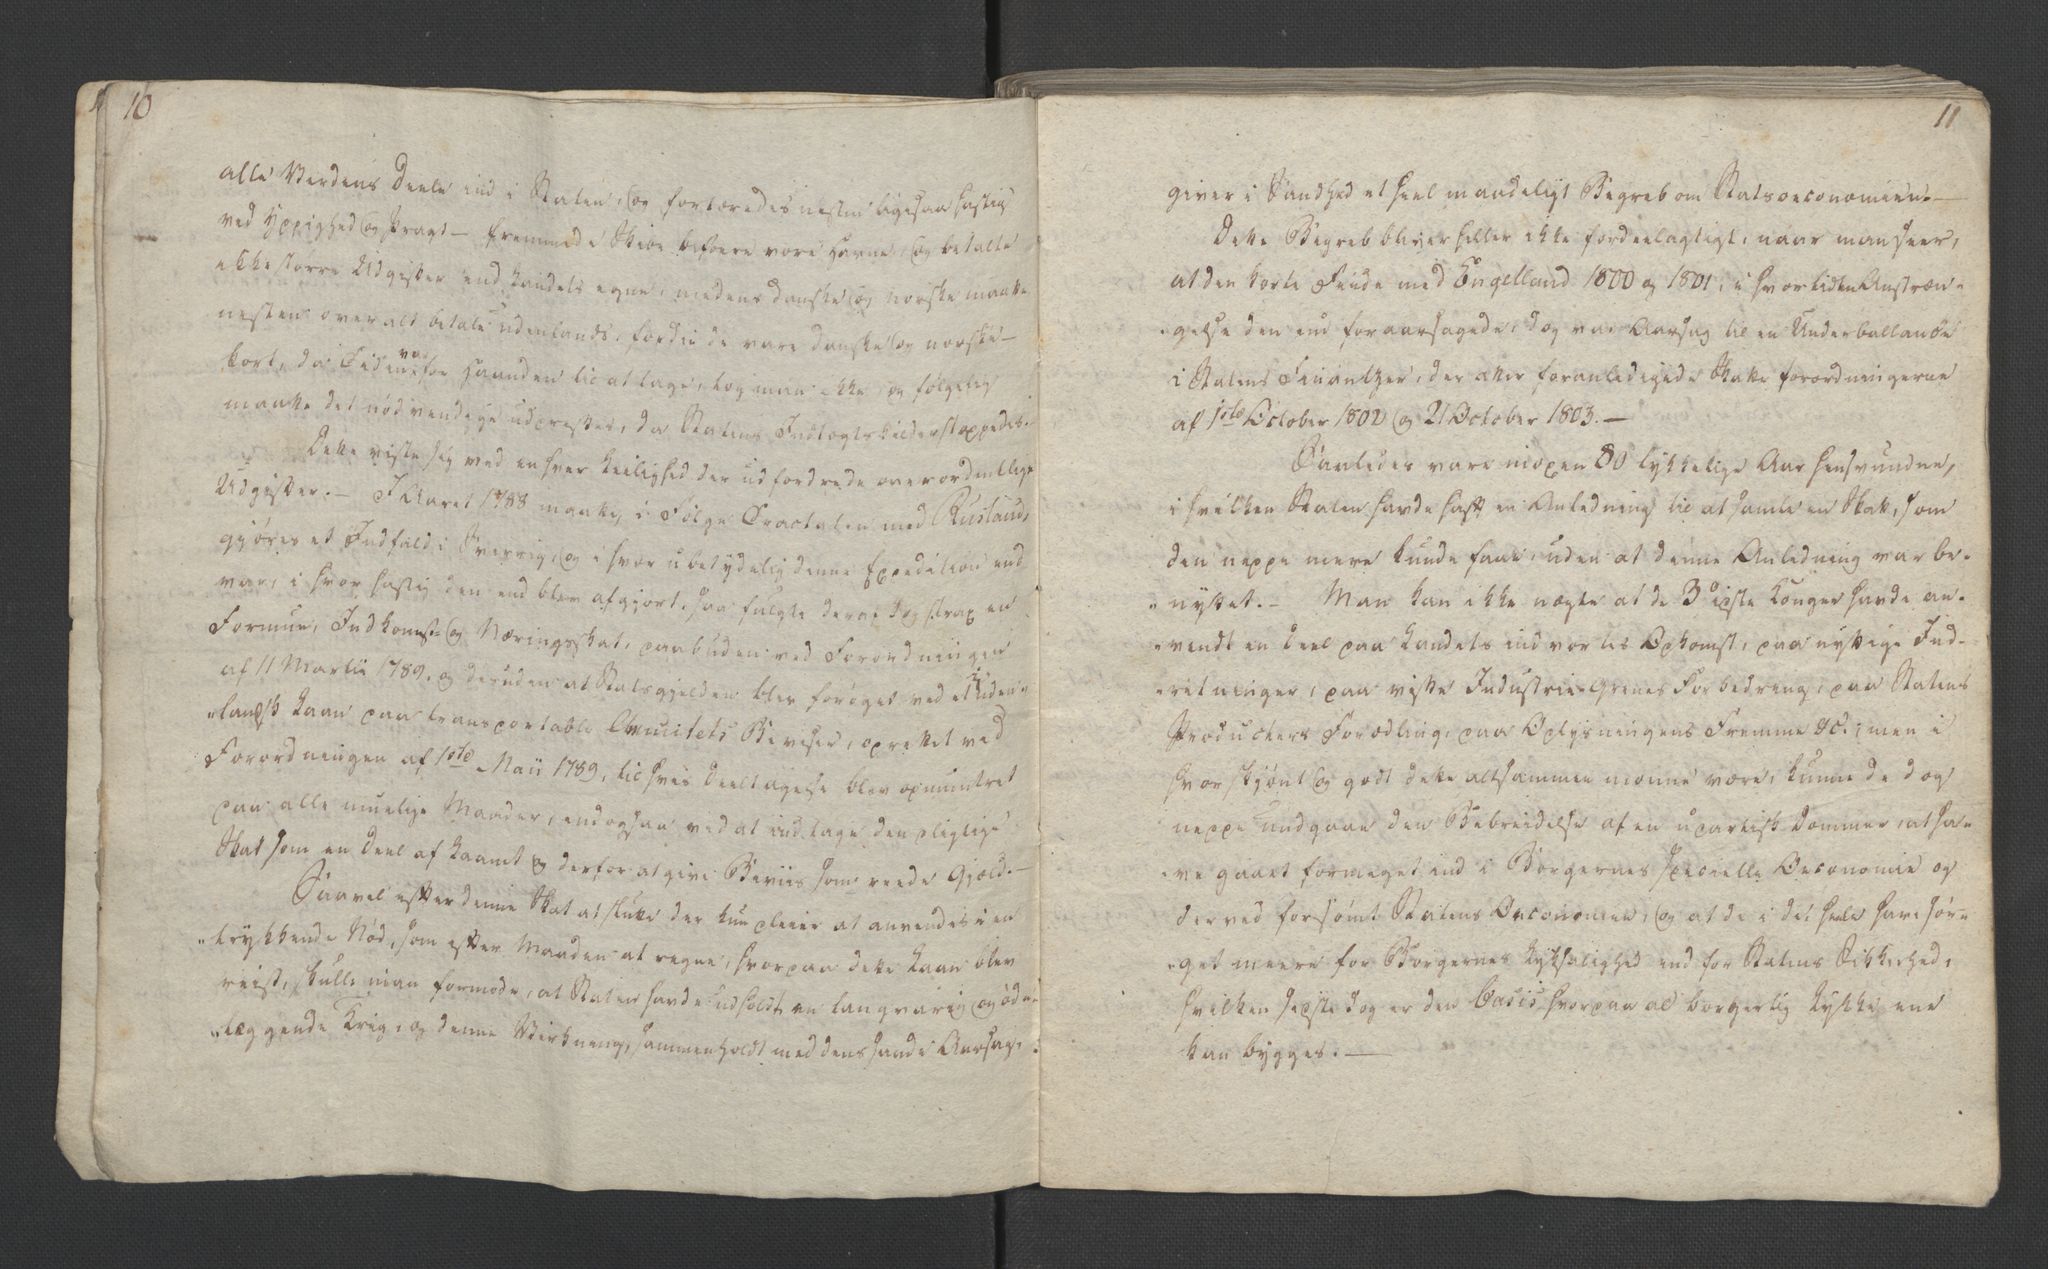 10
alle Verdens Deele ind i Staten, og fortæredes nesten ligesaa hastig
ved Yppighed og Pragt – fremmede Skibe besøere vore Havne, og betalte
ikke større Udgifter end Landets egne, medens danske og norske maatte
nesten over alt betale udenlands, fordi de vare danske og norske –
kort, da Tiden var for Haanden til at tage, tog man ikke, og følgelig
maatte det nødvendige udpresses, da Statens Indtægtskilder stoppedes.
Dette viste sig ved en hver Leilighed der udfordrede overordentlige
Udgifter. – I Aaret 1788 maatte, i Følge Tractaten med Rusland,
gjøres et Indfald i Sverrig, og i hvor ubetydelig denne Expedition end
var, i hvor hastig den end blev afgjort, saa fulgte deraf dog strax en
Formue, Indkomst og Næringsskat, paabuden ved Forordningen
af 11 Martii 1789, og desuden at Statsgjelden blev forøget ved et uden-
landsk Laan paa transportable Annuitets Beviser, oprettet ved
Forordningen af 1ste Maii 1789, til hvis Deeltagelse blev opmuntret
paa alle muelige Maader, endogsaa ved at indtage den pligtige
Skat som en Deel af Laanet og derfor at give Beviis som reede Gjæld. –
Saavel efter denne Skat at slutte der kun pleier at anvendes i en
trykkende Nød, som efter Maaden at regne, hvorpaa dette Laan blev
reist, skulle man formode, at Staten havde udholdt en langvarig og øde-
læggende Krig, og denne Virkning, sammenholdt med dens sande Aarsag,
11
giver i Sandhed et heel maadeligt Begreb om Statsoeconomien. –
Dette Begreb bliver heller ikke fordeelagtigt, naar man seer,
at den korte Feide med Engelland 1800 og 1801, i hvor liden Anstræn-
gelse den end foraarsagede, dog var Aarsag til en Underballance
i Statens Finantzer, der atter foranledigede Skatte forordningerne
af 1ste October 1802 og 21 October 1803. –
Saaledes vare mopen 80 lykkelige Aar hensvundne,
i hvilken Staten havde hafft en Anledning til at samle en Skat, som
den neppe mere kunde faae, uden at denne Anledning var be-
nyttet. – Man kan ikke nægte at de 3de sidste Konger havde an-
vendt en Deel paa Landets indvortes Opkomst, paa nyttige Ind-
retninger, paa visse Industrie-Grenes Forbedring, paa Statens
Producters Forædling, paa Oplysningens Fremme &c.; men i
hvor skjønt og godt dette altsammen monne være, kunne de dog
neppe undgaae den Bebreidelse af en upartisk Dommer, at ha-
ve gaaet formeget ind i Borgernes specielle Oeconomie og
derved forsømt Statens Oeconomie, og at de i det heele have sør-
get meere for Borgernes Lyksalighed end for Statens Sikkerhed,
hvilken sidste dog er den Basis hvorpaa al borgerlig Lykke ene
kan bygges. –